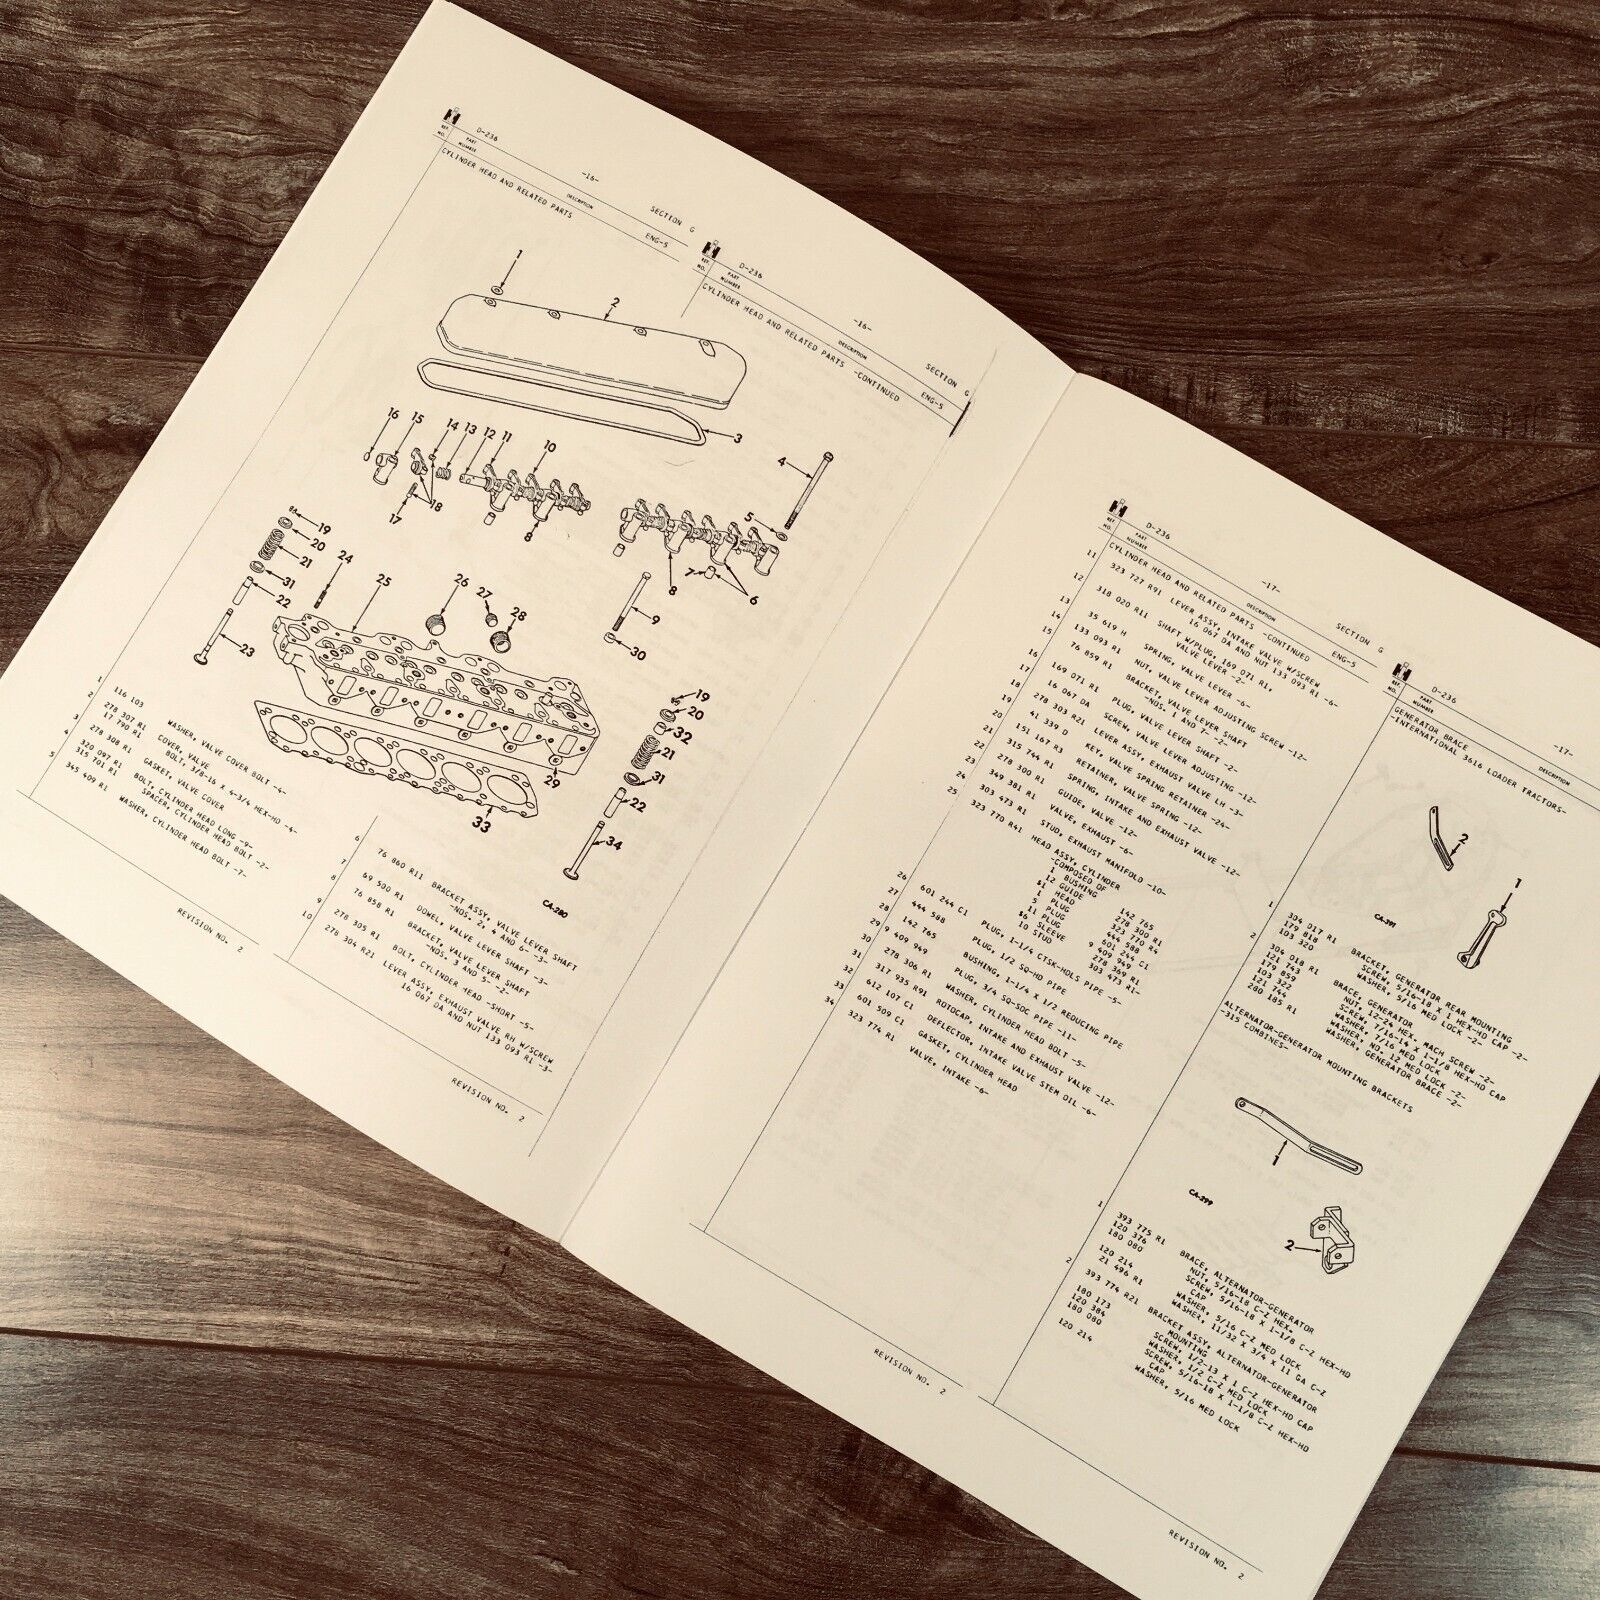 D-236
-16-
SECTION G
REF. NO.
PART NUMBER
DESCRIPTION
CYLINDER HEAD AND RELATED PARTS
ENG-5
1
2
3
4
5
6
7
8
8
9
10
11
12
13
14
15
16
17
18
19
20
21
31
22
23
24
25
26
27
28
29
30
19
20
32
21
31
22
33
34
CA-280
1 116 103 WASHER, VALVE COVER BOLT -4-
2 278 307 R1 COVER, VALVE
17 790 R1 BOLT, 3/8-16 X 4-3/4 HEX-HD -4-
3 278 308 R1 GASKET, VALVE COVER
4 320 097 R1 BOLT, CYLINDER HEAD LONG -9-
315 701 R1 SPACER, CYLINDER HEAD BOLT -2-
5 345 409 R1 WASHER, CYLINDER HEAD BOLT -7-
REVISION NO. 2
D-236
-16-
SECTION G
REF. NO.
PART NUMBER
DESCRIPTION
CYLINDER HEAD AND RELATED PARTS -CONTINUED
ENG-5
6 76 860 R11 BRACKET ASSY, VALVE LEVER SHAFT
-NOS. 2, 4 AND 6- -3-
7 69 500 R1 DOWEL, VALVE LEVER SHAFT -3-
8 76 858 R1 BRACKET, VALVE LEVER SHAFT
-NOS. 3 AND 5- -2-
9 278 305 R1 BOLT, CYLINDER HEAD -SHORT -5-
10 278 304 R21 LEVER ASSY, EXHAUST VALVE RH W/SCREW
16 067 DA AND NUT 133 093 R1 -3-
REVISION NO. 2
D-236
-17-
SECTION G
REF. NO.
PART NUMBER
DESCRIPTION
CYLINDER HEAD AND RELATED PARTS -CONTINUED
ENG-5
11 323 727 R91 LEVER ASSY, INTAKE VALVE W/SCREW
16 067 DA AND NUT 133 093 R1 -6-
12 318 020 R11 SHAFT W/PLUG, 169 071 R1,
VALVE LEVER -2-
13 35 619 H SPRING, VALVE LEVER -6-
14 133 093 R1 NUT, VALVE LEVER ADJUSTING SCREW -12-
15 76 859 R1 BRACKET, VALVE LEVER SHAFT
-NOS. 1 AND 7- -2-
16 169 071 R1 PLUG, VALVE LEVER SHAFT -2-
17 16 067 DA SCREW, VALVE LEVER ADJUSTING -12-
18 278 303 R21 LEVER ASSY, EXHAUST VALVE LH -3-
19 41 339 D KEY, VALVE SPRING RETAINER -24-
20 151 167 R3 RETAINER, VALVE SPRING -12-
21 315 744 R1 SPRING, INTAKE AND EXHAUST VALVE -12-
22 278 300 R1 GUIDE, VALVE -12-
23 349 381 R1 VALVE, EXHAUST -6-
24 303 473 R1 STUD, EXHAUST MANIFOLD -10-
25 323 770 R41 HEAD ASSY, CYLINDER
-COMPOSED OF
1 BUSHING 142 765
12 GUIDE 278 300 R1
$1 HEAD 323 770 R4
5 PLUG 444 588
1 PLUG 601 244 C1
11 PLUG 9 409 949
$6 SLEEVE 278 369 R1
10 STUD 303 473 R1-
26 601 244 C1 PLUG, 1-1/4 CTSK-HDLS PIPE -5-
27 444 588 PLUG, 1/2 SQ-HD PIPE
28 142 765 BUSHING, 1-1/4 X 1/2 REDUCING PIPE
29 9 409 949 PLUG, 3/4 SQ-SOC PIPE -11-
30 278 306 R1 WASHER, CYLINDER HEAD BOLT -5-
31 317 935 R91 ROTOCAP, INTAKE AND EXHAUST VALVE -12-
32 612 107 C1 DEFLECTOR, INTAKE VALVE STEM OIL -6-
33 601 509 C1 GASKET, CYLINDER HEAD
34 323 774 R1 VALVE, INTAKE -6-
REVISION NO. 2
D-236
-17-
REF. NO.
PART NUMBER
DESCRIPTION
GENERATOR BRACE
-INTERNATIONAL 3616 LOADER TRACTORS-
2
1
CA-391
1 304 017 R1 BRACKET, GENERATOR REAR MOUNTING
179 818 SCREW, 5/16-18 X 1 HEX-HD CAP -2-
103 320 WASHER, 5/16 MED LOCK -2-
2 304 018 R1 BRACE, GENERATOR
121 743 NUT, 12-24 HEX. MACH SCREW -2-
179 859 SCREW, 7/16-14 X 1-1/8 HEX-HD CAP
103 322 WASHER, 7/16 MED LOCK
121 744 WASHER, NO. 12 MED LOCK -2-
280 185 R1 WASHER, GENERATOR BRACE -2-
ALTERNATOR-GENERATOR MOUNTING BRACKETS
-315 COMBINES-
1
CA-399
2
1 393 775 R1 BRACE, ALTERNATOR-GENERATOR
120 376 NUT, 5/16-18 C-Z HEX.
180 080 SCREW, 5/16-18 X 1-1/8 C-Z HEX-HD
CAP
120 214 WASHER, 5/16 C-Z MED LOCK
21 496 R1 WASHER, 11/32 X 3/4 X 11 GA C-Z
2 393 774 R21 BRACKET ASSY, ALTERNATOR-GENERATOR
MOUNTING
180 173 SCREW, 1/2-13 X 1 C-Z HEX-HD CAP
120 384 WASHER, 1/2 C-Z MED LOCK
180 080 SCREW, 5/16-18 X 1-1/8 C-Z HEX-HD
CAP
120 214 WASHER, 5/16 MED LOCK
REVISION NO. 2